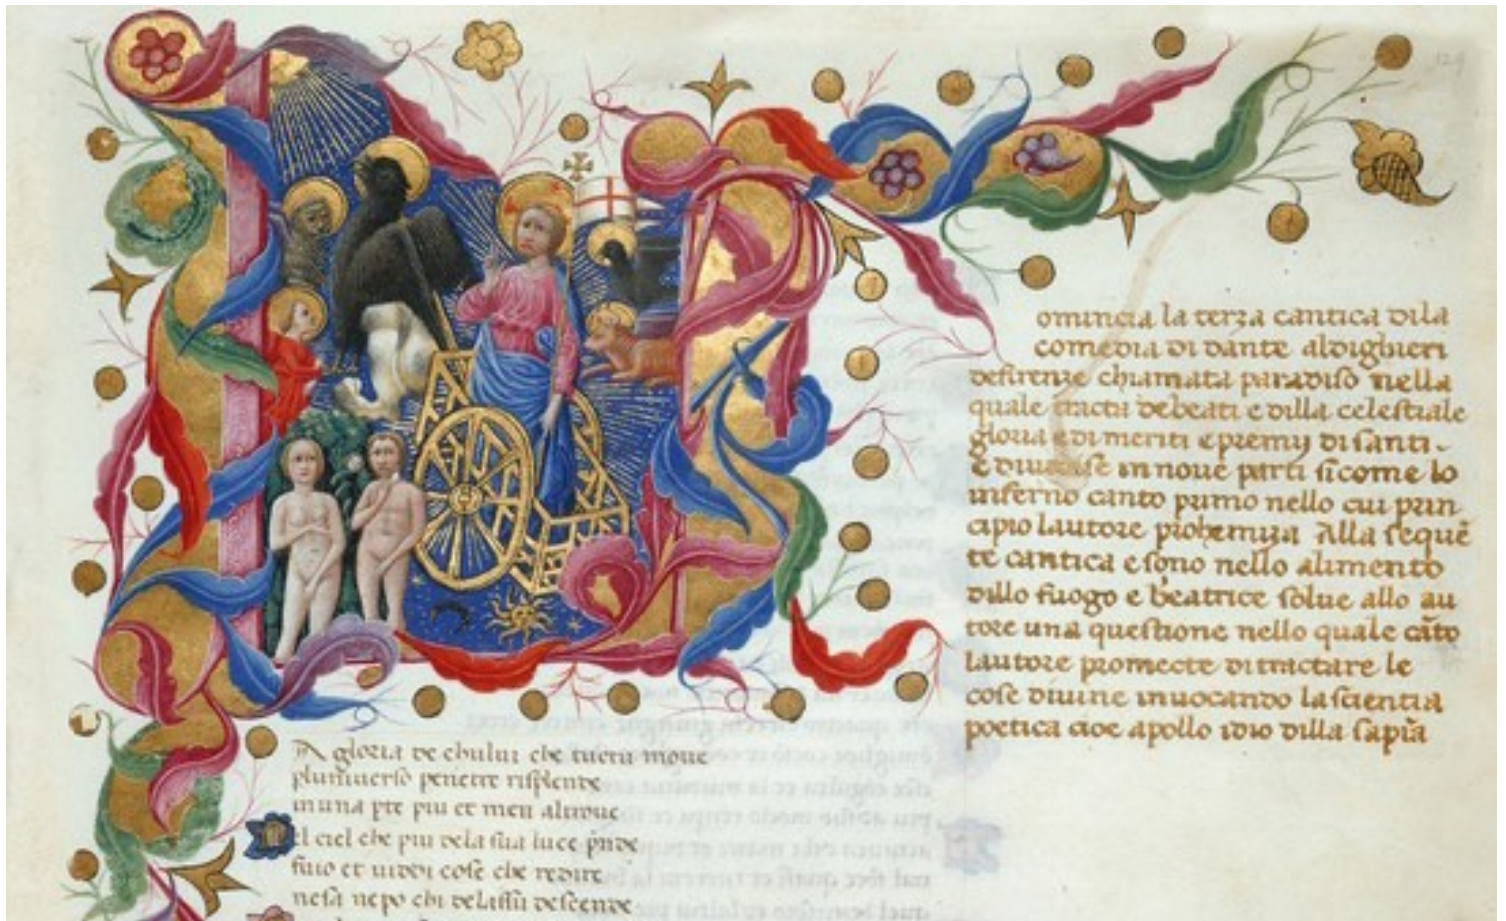 omincia la terza cantica dila
comedia di dante aldighieri
defirenze chiamata paradiso nella
quale tracta debeati e dilla celestiale
gloria e di meriti e premij di santi
e diuidise in noue parti sicome lo
inferno canto primo nello cui prin
cipio lautore prohemiza Alla sequē
te cantica e sono nello alimento
dillo fuogo e beatrice solue allo au
tore una questione nello quale cāto
lautore promecte di tractare le
cose diuine inuocando la scientia
poetica cioe apollo idio dilla sapīa
A gloria de chului che tuctu moue
pluniuerso penetre risplende
in una pte piu et men altroue
El ciel che piu dela sua luce prende
fuio et uiddi cose che redire
nesa nepo chi delassu descende